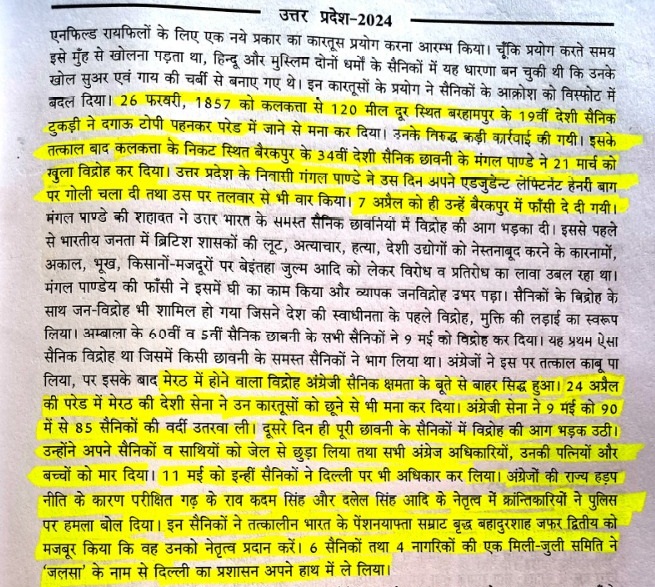 उत्तर प्रदेश-2024
एनफिल्ड रायफिलों के लिए एक नये प्रकार का कारतूस प्रयोग करना आरम्भ किया। चूँकि प्रयोग करते समय
इसे मुँह से खोलना पड़ता था, हिन्दू और मुस्लिम दोनों धर्मों के सैनिकों में यह धारणा बन चुकी थी कि उनके
खोल सुअर एवं गाय की चर्बी से बनाए गए थे। इन कारतूसों के प्रयोग ने सैनिकों के आक्रोश को विस्फोट में
बदल दिया। 26 फरवरी, 1857 को कलकत्ता से 120 मील दूर स्थित बरहामपुर के 19वीं देशी सैनिक
टुकड़ी ने दगाऊ टोपी पहनकर परेड में जाने से मना कर दिया। उनके विरुद्ध कड़ी कार्रवाई की गयी। इसके
तत्काल बाद कलकत्ता के निकट स्थित बैरकपुर के 34वीं देशी सैनिक छावनी के मंगल पाण्डे ने 21 मार्च को
खुला विद्रोह कर दिया। उत्तर प्रदेश के निवासी गंगल पाण्डे ने उस दिन अपने एडजुडेन्ट लेफ्टिनेंट हेनरी बाग
पर गोली चला दी तथा उस पर तलवार से भी वार किया। 7 अप्रैल को ही उन्हें बैरकपुर में फाँसी दे दी गयी।
मंगल पाण्डे की शहादत ने उत्तर भारत के समस्त सैनिक छावनियों में विद्रोह की आग भड़का दी। इससे पहले
से भारतीय जनता में ब्रिटिश शासकों की लूट, अत्याचार, हत्या, देशी उद्योगों को नेस्तनाबूद करने के कारनामों,
अकाल, भूख, किसानों-मजदूरों पर बेइंतहा जुल्म आदि को लेकर विरोध व प्रतिरोध का लावा उबल रहा था।
मंगल पाण्डेय की फाँसी ने इसमें घी का काम किया और व्यापक जनविद्रोह उभर पड़ा। सैनिकों के बिद्रोह के
साथ जन-विद्रोह भी शामिल हो गया जिसने देश की स्वाधीनता के पहले विद्रोह, मुक्ति की लड़ाई का स्वरूप
लिया। अम्बाला के 60वीं व 5नीं सैनिक छाबनी के सभी सैनिफों ने 9 मई को विद्रोह कर दिया। यह प्रथम ऐसा
सैनिक विद्रोह था जिसमें किसी छावनी के समस्त सैनिकों ने भाग लिया था। अंग्रेजों ने इस पर तत्काल काबू पा
लिया, पर इसके बाद मेरठ में होने वाला विद्रोह अंग्रेजी सैनिक क्षमता के बूते से बाहर सिद्ध हुआ। 24 अप्रैल
की परेड में मेरठ की देशी सेना ने उन कारतूसों को छूने से भी मना कर दिया। अंग्रेजी सेना ने 9 मई को 90
में से 85 सैनिकों की वर्दी उतरवा ली। दूसरे दिन ही पूरी छावनी के सैनिकों में विद्रोह की आग भड़क उठी।
उन्होंने अपने सैनिकों व साथियों को जेल से छुड़ा लिया तथा सभी अंग्रेज अधिकारियों, उनकी पत्नियों और
बच्चों को मार दिया। 11 मई को इन्हीं सैनिकों ने दिल्ली पर भी अधिकार कर लिया। अंग्रेजों की राज्य हड़प
नीति के कारण परीक्षित गढ़ के राव कदम सिंह और दलेल सिंह आदि के नेतृत्व में क्रान्तिकारियों ने पुलिस
पर हमला बोल दिया। इन सैनिकों ने तत्कालीन भारत के पेंशनयाफ्ता सम्राट बृद्ध बहादुरशाह जफर द्वितीय को
मजबूर किया कि वह उनको नेतृत्व प्रदान करें। 6 सैनिकों तथा 4 नागरिकों की एक मिली-जुली समिति ने
'जलसा' के नाम से दिल्ली का प्रशासन अपने हाथ में ले लिया।